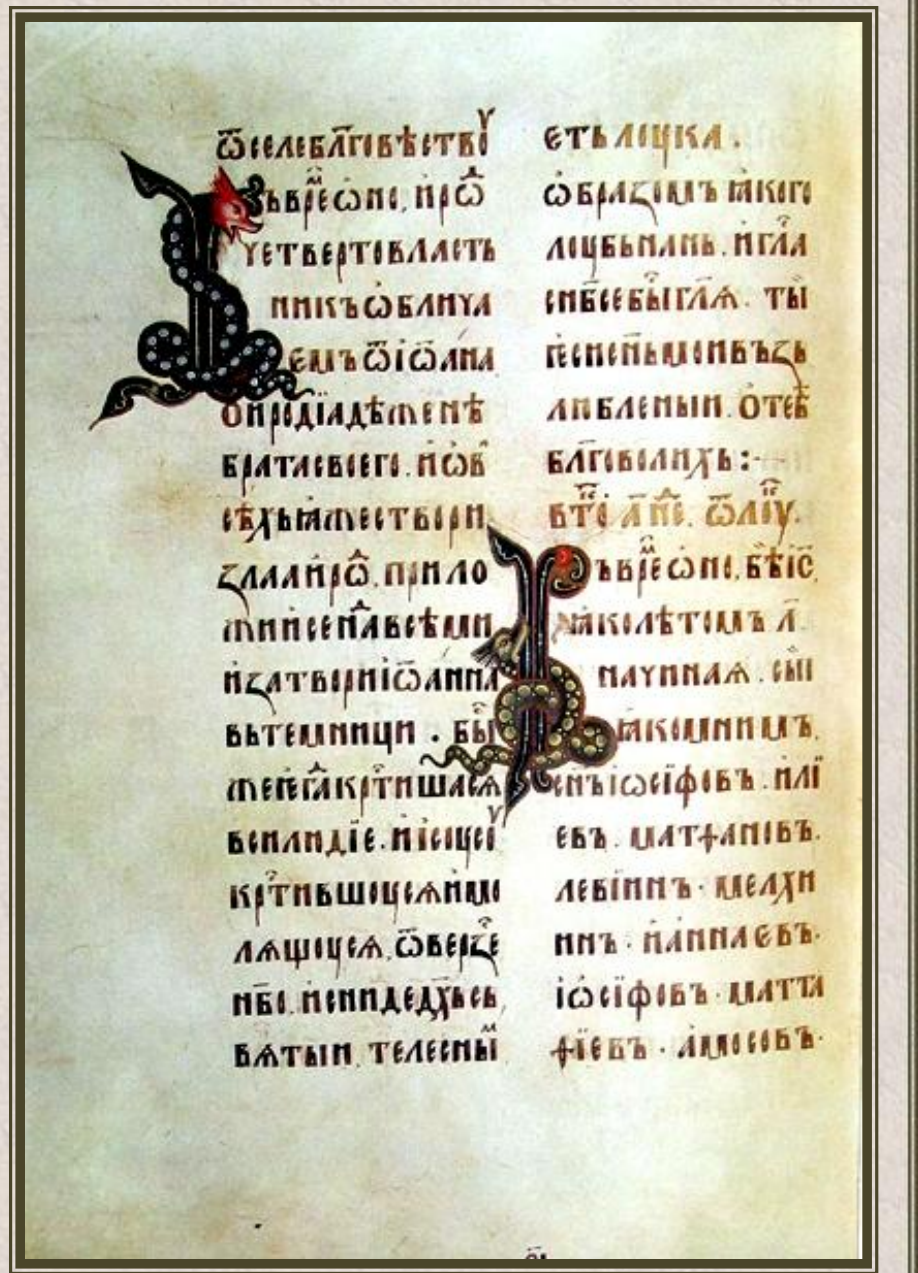 ѿселеблг҃овѣствоу
Въвре́мѡно, ирѡ́
четвертовласть
никъѡблича
емъѿіѡа́на
ѻиродїадѣженѣ
братасвоего. ио҆в
сѣхьꙗжествори
ꙁлааирѡ. прило
жиисенавсѣми
иꙁатвориіѡанна
вьтемници . бы
жеегⷣакрⷭ҇тишасѧ
вси людїе . иісоусоу
крⷭ҇тившоусѧимо
лѧщоусѧ . ѿверꙁе
нб҃о . исниде дх҃ьсь
вѧтыи телесны
еть лоука .
ѡбраꙁомъ ꙗкого
лоубьнань . игла
сънб҃себыглѧ҃ . ты
ѥсисн҃ьмоивъꙁь
люблены и . о тебѣ
блг҃оволихь :·
ъвремѡно, бѣіс҃
ꙗколѣтомъ л҃
начинаꙗ . сы
ꙗкомнимъ
сн҃ъіѡсїфовъ . илї
евъ . матѳановъ .
левіинъ · мелхи
инъ · ианнаевъ ·
іѡсїфовъ · матта
ѳїевъ · амосовъ ·